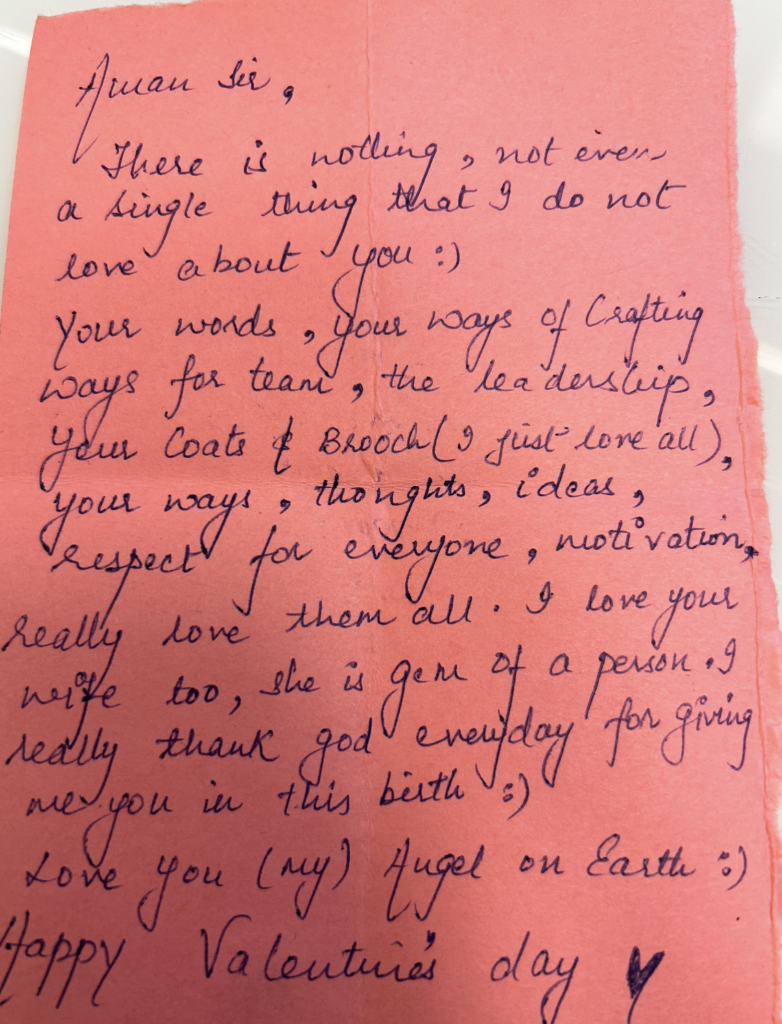 Aman Sir,
There is nothing, not even
a single thing that I do not
love about you :)
Your words, your ways of Crafting
ways for team, the leadership,
your Coats & Brooch (I just love all),
your ways, thoughts, ideas,
respect for everyone, motivation,
really love them all. I love your
wife too, she is gem of a person. I
really thank god everyday for giving
me you in this birth :)
Love you (my) Angel on Earth :)
Happy Valentine's day ♥